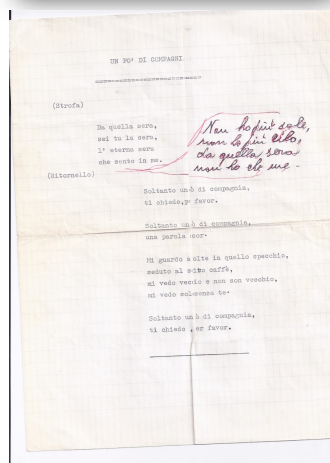 UN PO' DI COMPAGNI
(Strofa)
Da quella sera,
sei tu la cera,
l' eterna sera
che sento in me.
Non ho più sole,
non ho più cielo,
da quella sera
non ho che me.
(Ritornello)
Soltanto un ò di compagnia,
ti chiedo, favor.
Soltanto un ò di compagnia,
una parola cor.
Mi guardo olte in quello specchio,
seduto al caffè,
mi vedo vecchio e non son vecchio,
mi vedo senza te.
Soltanto un ò di compagnia,
ti chiedo er favor.